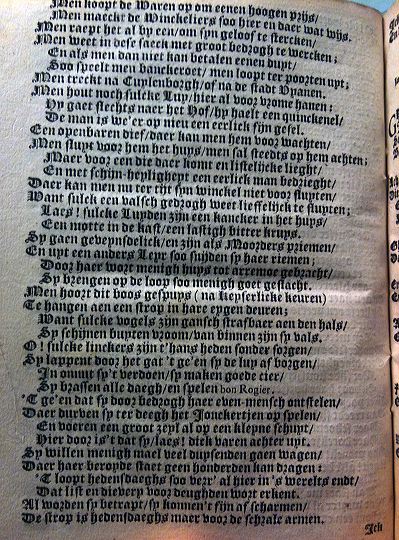 Men koopt de Waren op om eenen hoogen prijs/
Men maeckt de Winckeliers soo hier en daer wat wijs.
Men raept het al by een/om syn geloof te stercken/
Men weet in dese saeck met groot bedrogh te wercken;
En als men dan niet kan betalen eenen duyt/
Soo speelt men bancheroet/men loopt ter poorten uyt;
Men treckt na Cuylenborgh/of na de stadt Vyanen.
Men hout noch sulcke Luy/hier al voor vrome hanen;
Hy gaet slechts naer het Hof/hy haelt een quinckenel
De man is we'er op nieu een eerlick sijn gesel.
Een openbaren dief/daer kan men hem voor wachten/
Men sluyt voor hem het huys/men sal steedts op hem achten;
Maer voor een die daer komt en listelijcke lieght/
En met schijn-heyligheyt een eerlick man bedrieght/
Daer kan men nu ter tijt syn winckel niet voor sluyten/
Want sulck een valsch gedrogh weet lieffelijck te fluyten;
Laes! sulcke Luyden zijn een kancker in het huys/
Een motte in de kast/een lastigh bitter kruys.
Sy gaen geveynsdelick/en zijn als Moorders priemen/
En uyt een anders Leyr soo snijden sy haer riemen;
Door haer wort menigh huys tot arremoe gebracht/
Sy brengen op de loop soo menigh goet geslacht.
Men hoort dit boos gespuys (na Keyserlicke keuren)
Te hangen aen een strop in hare eygen deuren;
Want sulcke vogels zijn gansch strafbaer aen den hals/
Sy schijnen buyten vroom/van binnen zijn sy vals.
O! sulcke linckers zijn t'hans heden sonder sorgen/
Sy lappent door het gat 't ge'en sy de luy af borgen/
In onnut sy't verdoen/sy maken goede cier/
Sy brassen alle daegh/en spelen bon Rogier.
'T ge'en dat sy door bedrogh haer even-mensch ontstelen/
Daer durven sy ter deegh het Jonckertjen op spelen/
En voeren een groot zeyl al op een kleyne schuyt/
Hier door is't dat sy/laes! dick varen achter uyt.
Sy willen menigh mael veel duysenden gaen wagen/
Daer haer beroyde staet geen honderden kan dragen:
'T loopt hedensdaeghs soo verr' al hier in's werelts endt/
Dat list en dievery voor deughden wort erkent.
Al worden sy betrapt/sy konnen't sijn af scharmen/
De strop is hedensdaeghs maer voor de schrale armen.
Ick